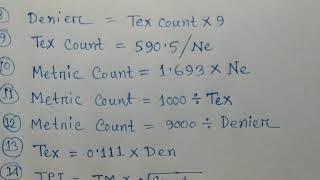 8 Denier = Tex Count × 9
9 Tex Count = 590.5/Ne
10 Metric Count = 1.693 × Ne
11 Metric Count = 1000 ÷ Tex
12 Metric Count = 9000 ÷ Denier
13 Tex = 0.111 × Den
14 TPI = TM ×